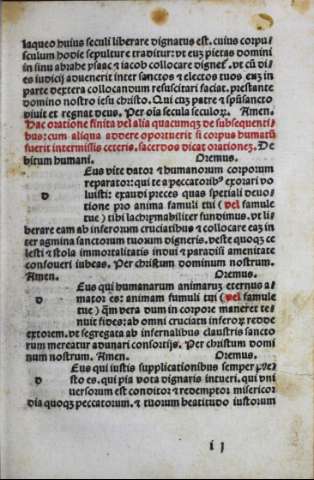 laqueo huius seculi liberare dignatus est. cuius corpu/
sculum hodie sepulture traditur: vt euʒ pietas domini
in sinu abrahe ysaac ⁊ iacob collocare dignet᷑. vt cū di/
es iudicij aduenerit inter sanctos ⁊ electos tuos eaʒ in
parte dextera collocandum resuscitari faciat. prestante
domino nostro iesu christo. Qui cuʒ patre ⁊ spūsancto
viuit et regnat deus. Per oīa secula seculoꝝ. Amen.
Hac oratione finita vel alia quacumqʒ de subsequenti/
bus: cum aliqua addere oportuerit si corpus humatū
fuerit intermissis ceteris. sacerdos dicat orationeʒ. De
bitum humani. Oremus.
Eus vite dator ⁊ humanorum corporum
reparator: qui te a peccatoribꝰ exorari vo
d luisti: exaudi preces quas speciali deuo/
tione pro anima famuli tui (vel famule
tue) tibi lachrymabiliter fundimus. vt li/
berare eam ab infernorum cruciatibus ⁊ collocare eaʒ in
ter agmina sanctorum tuorum digneris. veste quoqʒ ce
lesti ⁊ stola immortalitatis indui ⁊ paradisi amenitate
confoueri iubeas. Per christum dominum nostrum.
Amen. Oremus.
Eus qui humanarum animarum eternus a/
d mator es: animam famuli tui (vel famule
tue) quā vera dum in corpore maneret te/
nuit fides: ab omni cruciatu inferoꝝ redde
extorrem. vt segregata ab infernalibus claustris sancto
rum mereatur adunari consortijs. Per christum domi
num nostrum. Amen. Oremus.
Eus qui iustis supplicationibus semper pre/
d sto es. qui pia vota dignaris intueri. qui vni
uersorum est conditor ⁊ redemptor misericor
dia quoqʒ peccatorum. ⁊ tuorum beatitudo iustorum
i j